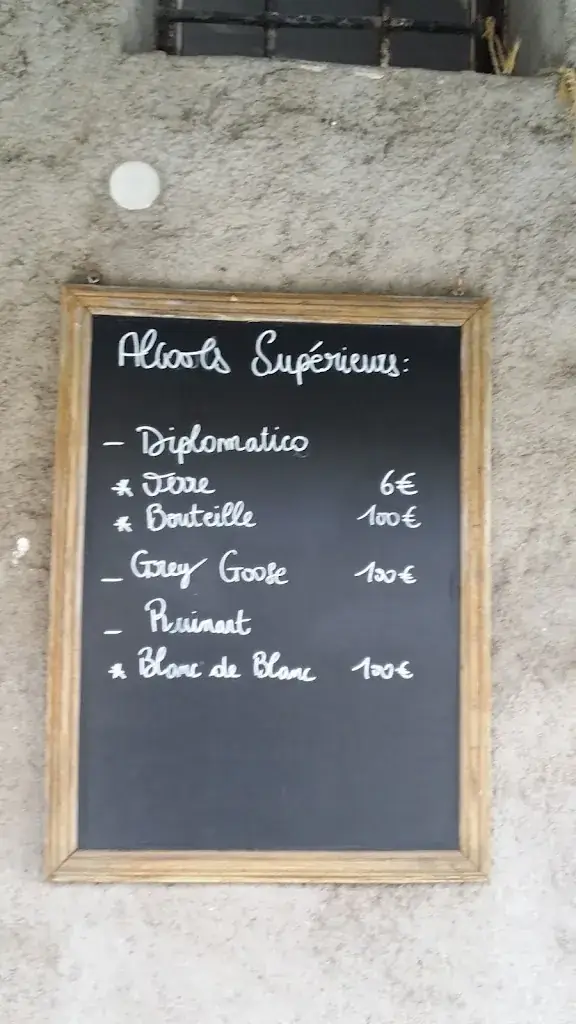 Alcools Supérieurs:
- Diplomatico
* Verre 6€
* Bouteille 100€
- Grey Goose 100€
- Ruinart
* Blanc de Blanc 100€